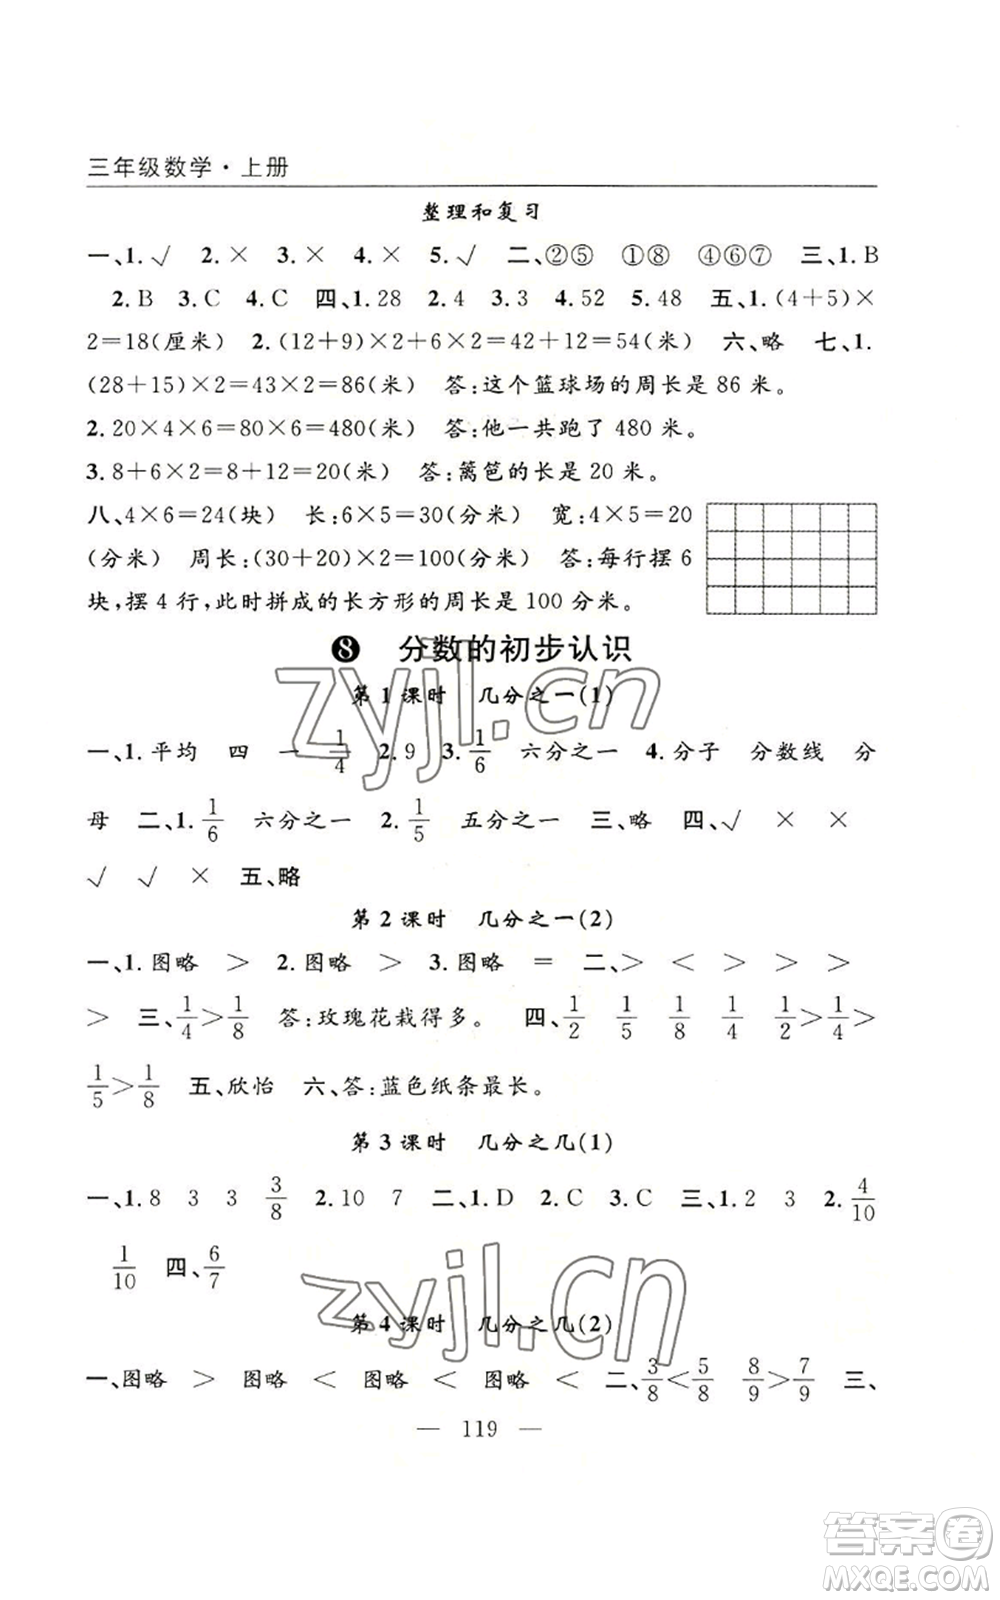 三年级数学·上册
整理和复习
一、1.√ 2.× 3.× 4.× 5.√ 二、②⑤ ①⑧ ④⑥⑦ 三、1.B
2.B 3.C 4.C 四、1.28 2.4 3.3 4.52 5.48 五、1.(4+5)×
2=18(厘米) 2.(12+9)×2+6×2=42+12=54(米) 六、略 七、1.
(28+15)×2=43×2=86(米) 答:这个篮球场的周长是 86 米。
2.20×4×6=80×6=480(米) 答:他一共跑了 480 米。
3.8+6×2=8+12=20(米) 答:篱笆的长是 20 米。
八、4×6=24(块) 长:6×5=30(分米) 宽:4×5=20
(分米) 周长:(30+20)×2=100(分米) 答:每行摆 6
块,摆 4 行,此时拼成的长方形的周长是 100 分米。
8 分数的初步认识
第 1 课时 几分之一(1)
一、1.平均 四 一 1/4 2.9 3.1/6 六分之一 4.分子 分数线 分
母 二、1.1/6 六分之一 2.1/5 五分之一 三、略 四、√ × ×
√ √ × 五、略
第 2 课时 几分之一(2)
一、1.图略 > 2.图略 > 3.图略 = 二、> < > > >
> 三、1/4>1/8 答:玫瑰花栽得多。 四、1/2 1/5 1/8 1/4 1/2>1/4>
1/5>1/8 五、欣怡 六、答:蓝色纸条最长。
第 3 课时 几分之几(1)
一、1.8 3 3 3/8 2.10 7 二、1.D 2.C 3.C 三、1.2 3 2.4/10
1/10 四、6/7
第 4 课时 几分之几(2)
一、图略 > 图略 < 图略 < 图略 < 二、3/8<5/8 8/9>7/9 三、
— 119 —
zyjl.cn
zyjl.cn
答案圈
MXQE.COM